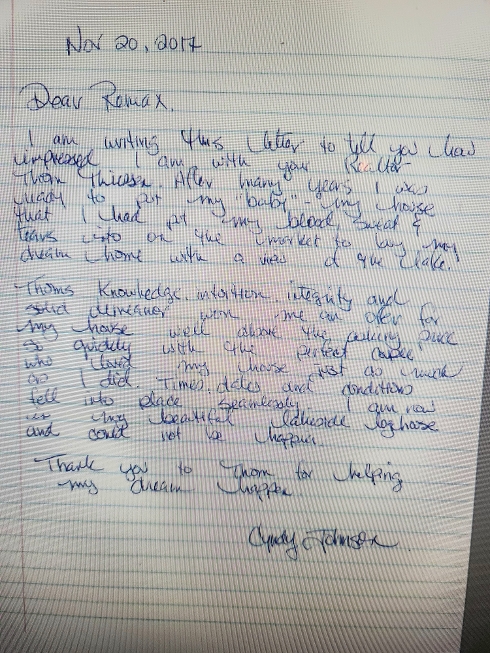 Nov 20, 2017
Dear Remax.
I am writing this letter to tell you how
impressed I am with your Realtor
Thom Thiessen. After many years I was
ready to put my "baby" - my house
that I had put my blood, sweat &
tears into on the market to buy my
dream home with a view of the lake.
Thoms Knowledge, intuition, integrity and
solid demeanor won me an offer for
my house well above the asking price
so quickly with the perfect couple
who loved my house just as much
as I did. Times, dates and conditions
fell into place seamlessly. I am now
in my beautiful lakeside loghouse
and could not be happier.
Thank you to Thom for helping
my dream happen.
Cyndy Johnson